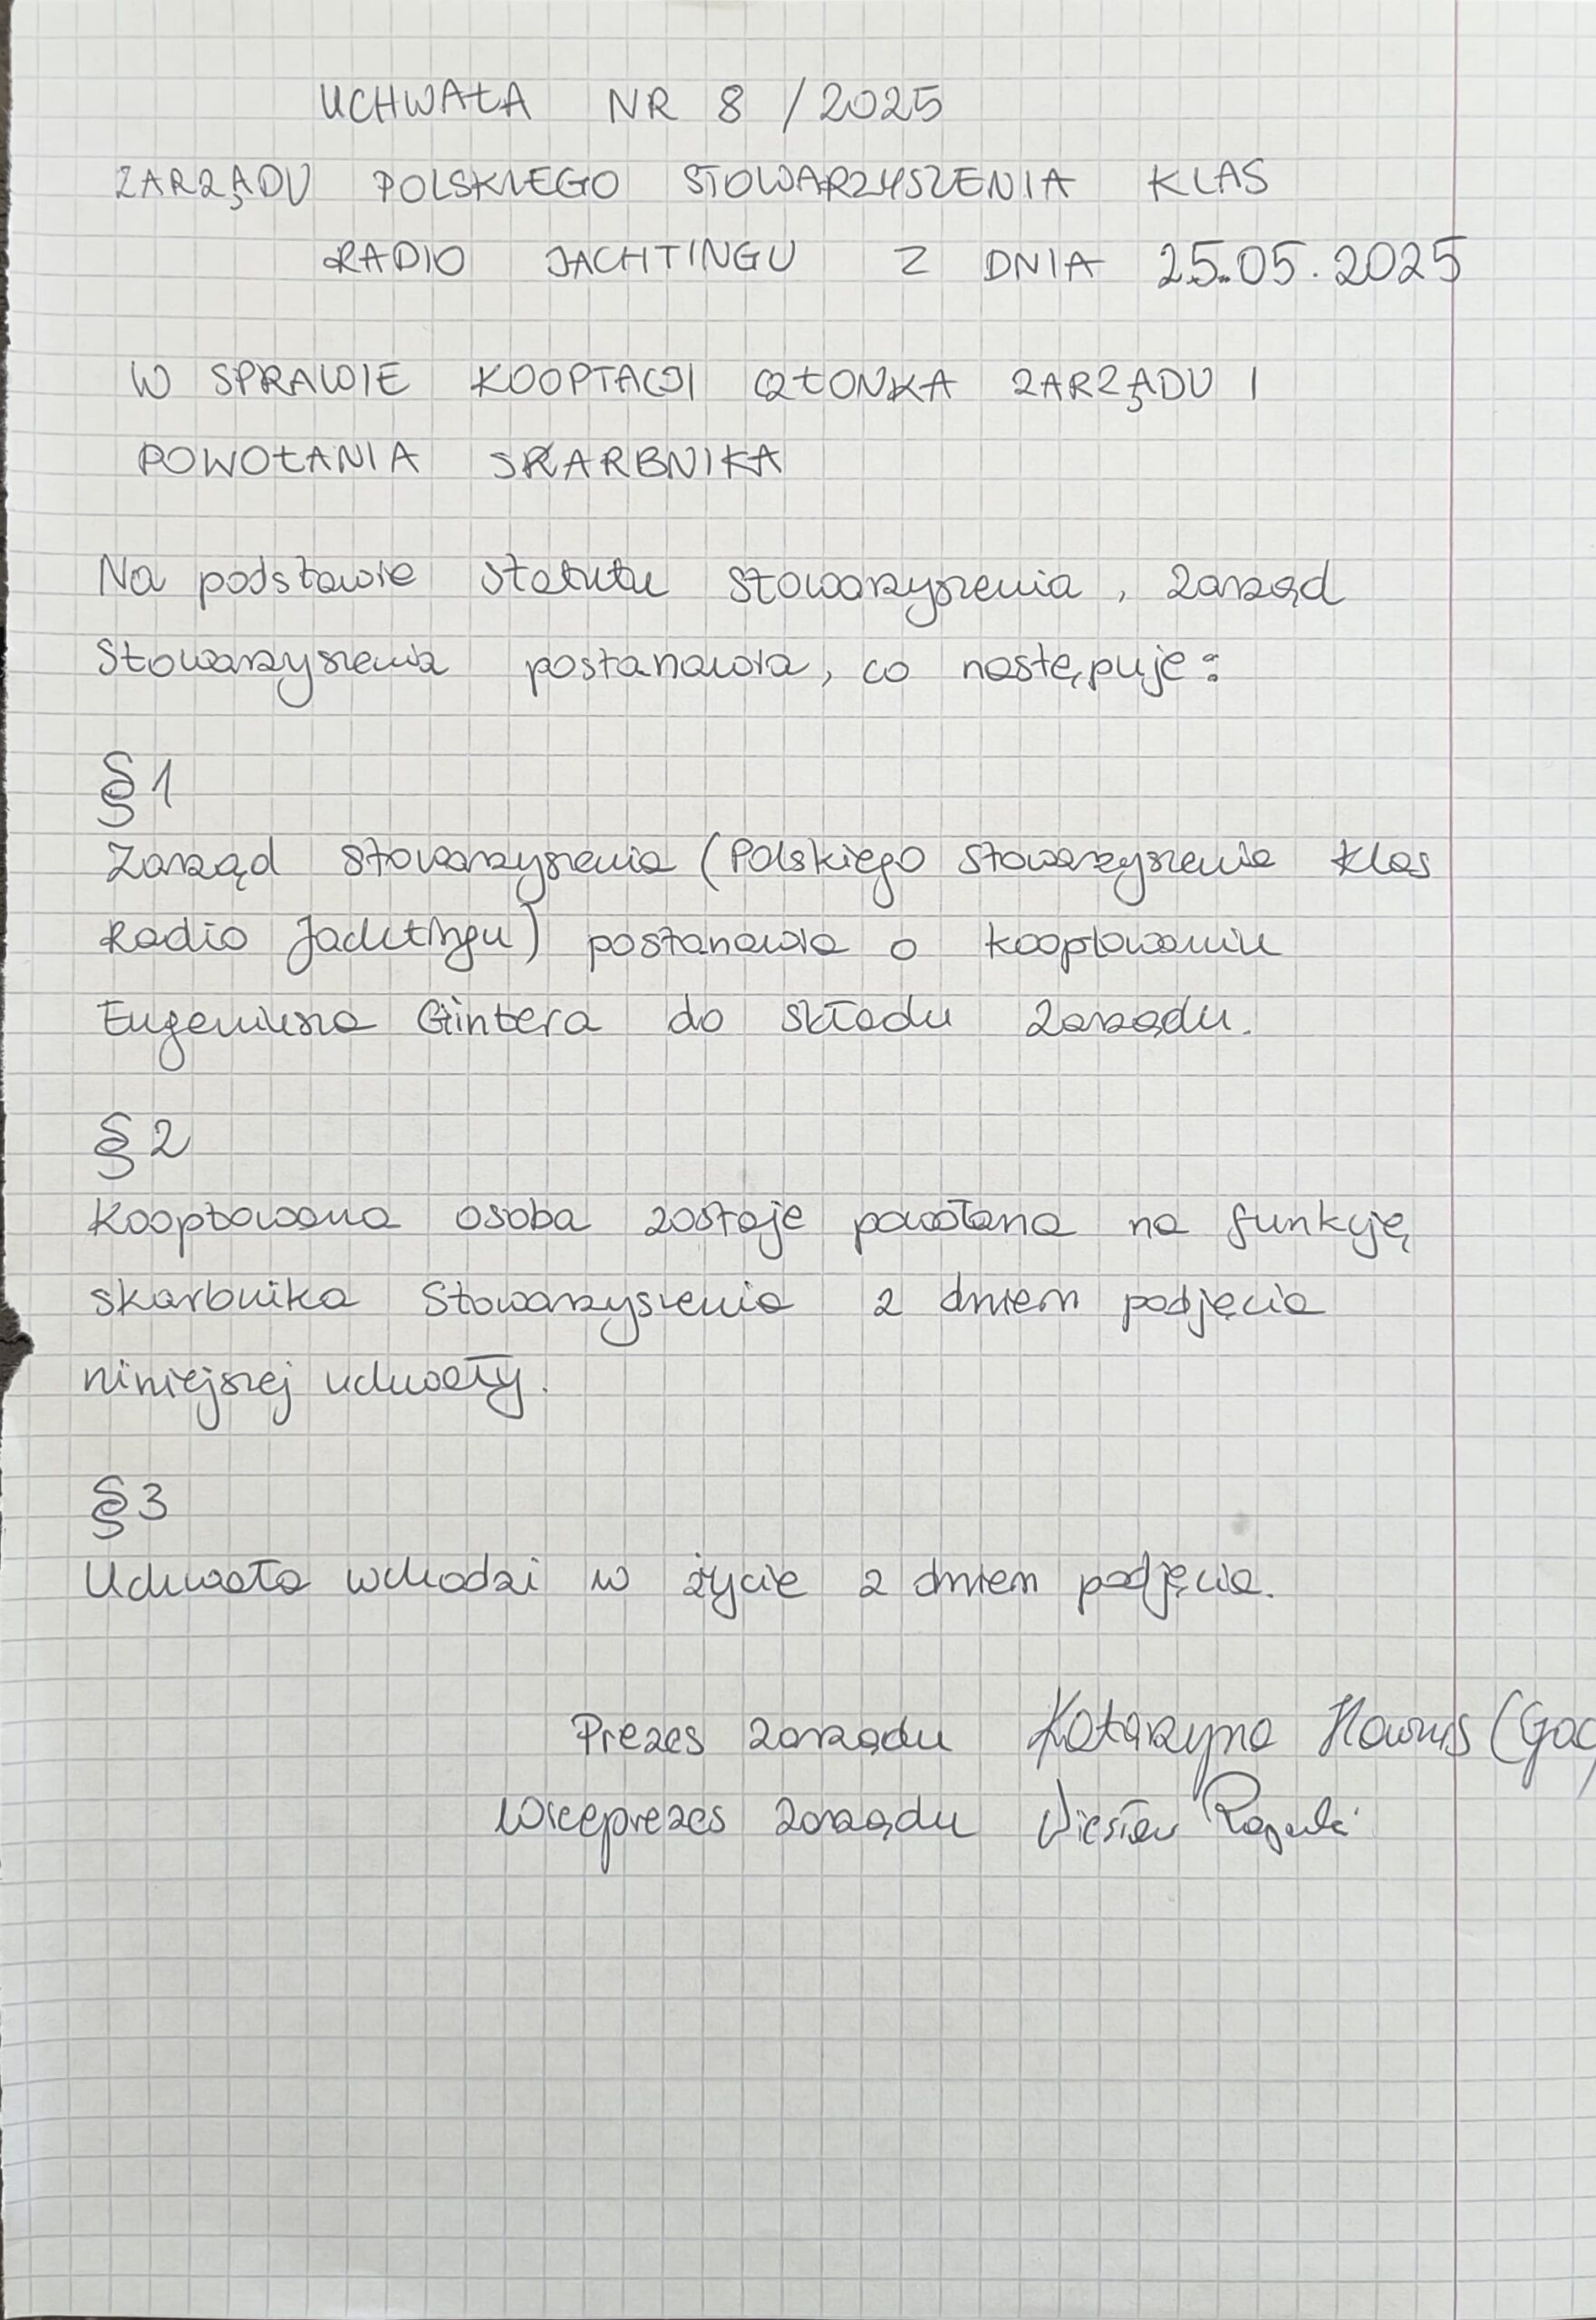 UCHWAŁA NR 8 / 2025
ZARZĄDU POLSKIEGO STOWARZYSZENIA KLAS
RADIO JACHTINGU Z DNIA 25.05.2025
W SPRAWIE KOOPTACJI CZŁONKA ZARZĄDU I
POWOŁANIA SKARBNIKA
Na podstawie statutu stowarzyszenia, Zarząd
Stowarzyszenia postanawia, co następuje:
§ 1
Zarząd Stowarzyszenia (Polskiego Stowarzyszenia Klas
Radio Jachtingu) postanawia o kooptowaniu
Eugeniusza Gintera do składu Zarządu.
§ 2
Kooptowana osoba zostaje powołana na funkcję
skarbnika Stowarzyszenia z dniem podjęcia
niniejszej uchwały.
§ 3
Uchwała wchodzi w życie z dniem podjęcia.
Prezes zarządu Katarzyna
Wiceprezes zarządu Wiesław